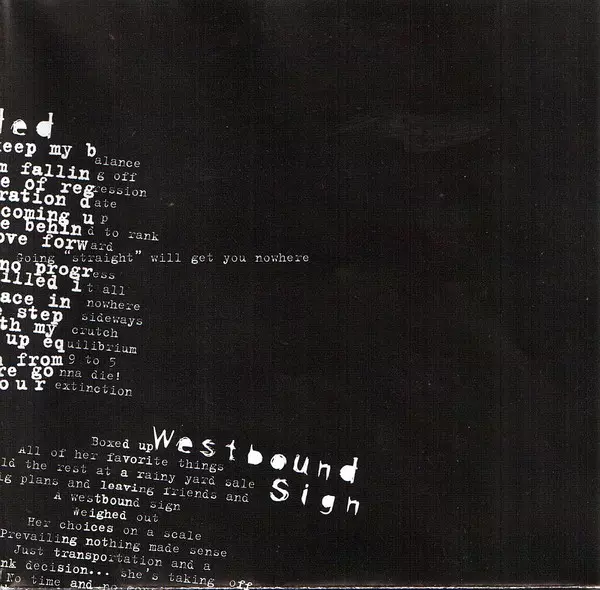 ted
keep my balance
m falling off
e of regression
ration date
coming up
e behind to rank
ove forward
Going "straight" will get you nowhere
no progress
illed it all
ace in nowhere
e step sideways
th my crutch
up equilibrium
n from 9 to 5
re gonna die!
our extinction
Westbound
Sign
Boxed up
All of her favorite things
ld the rest at a rainy yard sale
ig plans and leaving friends and
A westbound sign
Weighed out
Her choices on a scale
Prevailing nothing made sense
Just transportation and a
nk decision... she's taking off
No time and no